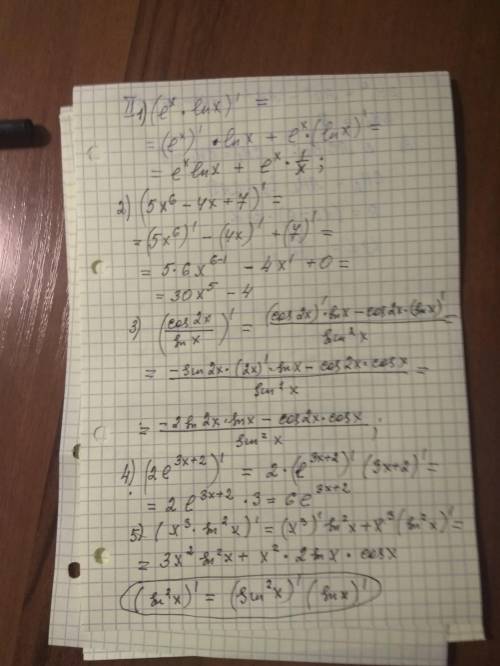 II 1) (eˣ · lnx)' =
= (eˣ)' · lnx + eˣ · (lnx)' =
= eˣ lnx + eˣ · 1/x ;
2) (5x⁶ − 4x + 7)' =
= (5x⁶)' − (4x)' + (7)' =
= 5·6x⁶⁻¹ − 4x' + 0 =
= 30x⁵ − 4
3) (cos2x / sinx)' = ((cos2x)' · sinx − cos2x · (sinx)') / sin²x =
= (−sin2x · (2x)' · sinx − cos2x · cosx) / sin²x =
= (−2sin2x · sinx − cos2x · cosx) / sin²x ;
4) (2e³ˣ⁺²)' = 2 · (e³ˣ⁺²)' (3x+2)' =
= 2e³ˣ⁺² · 3 = 6e³ˣ⁺²
5) (x³ · sin²x)' = (x³)' sin²x + x³ (sin²x)' =
= 3x² sin²x + x² · 2sinx · cosx
(sin²x)' = (sin²x)' (sinx)'